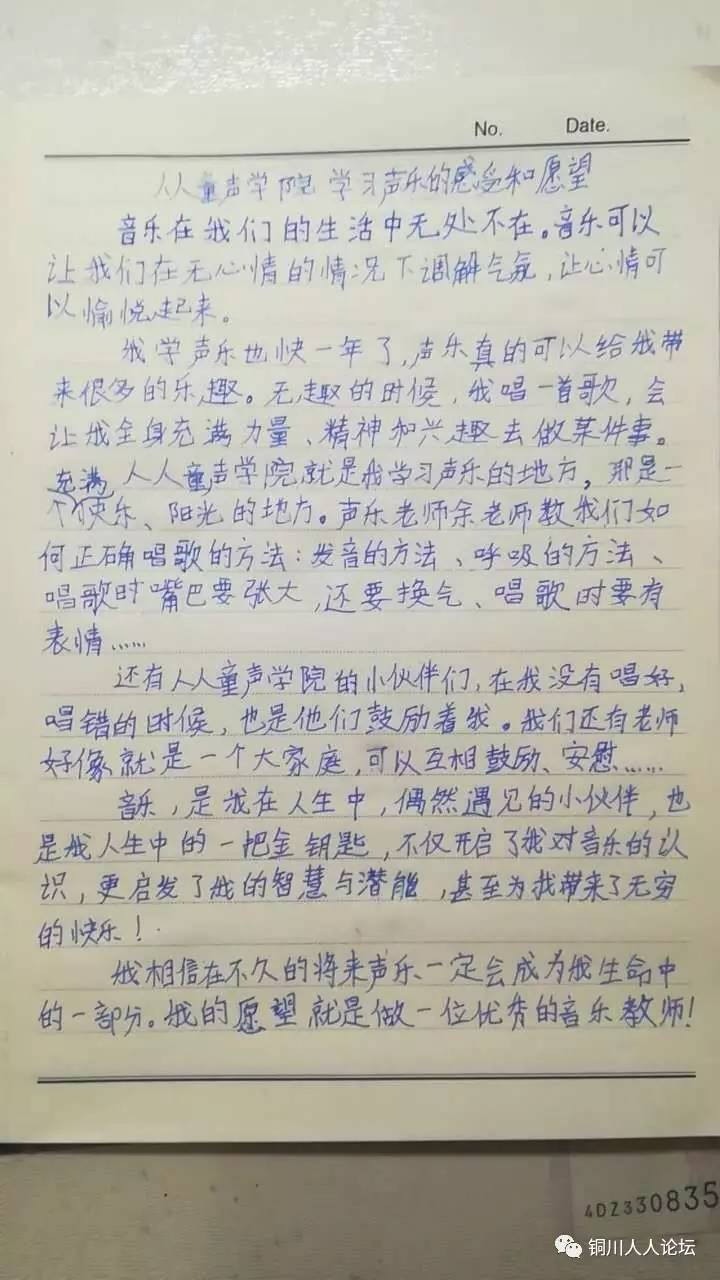 No. Date.
人人童声学院学习声乐的感受和愿望
音乐在我们的生活中无处不在。音乐可以
让我们在无心情的情况下调解气氛,让心情可
以愉悦起来。
我学声乐也快一年了,声乐真的可以给我带
来很多的乐趣。无趣的时候,我唱一首歌,会
让我全身充满力量、精神和兴趣去做某件事。
充满 人人童声学院就是我学习声乐的地方,那是一
个快乐、阳光的地方。声乐老师余老师教我们如
何正确唱歌的方法:发音的方法、呼吸的方法、
唱歌时嘴巴要张大,还要换气、唱歌时要有
表情……
还有人人童声学院的小伙伴们,在我没有唱好,
唱错的时候,也是他们鼓励着我。我们还有老师
好像就是一个大家庭,可以互相鼓励、安慰……
音乐,是我在人生中,偶然遇见的小伙伴,也
是我人生中的一把金钥匙,不仅开启了我对音乐的认
识,更启发了我的智慧与潜能,甚至为我带来了无穷
的快乐!
我相信在不久的将来声乐一定会成为我生命中
的一部分。我的愿望就是做一位优秀的音乐教师!
4DZ330835
铜川人人论坛